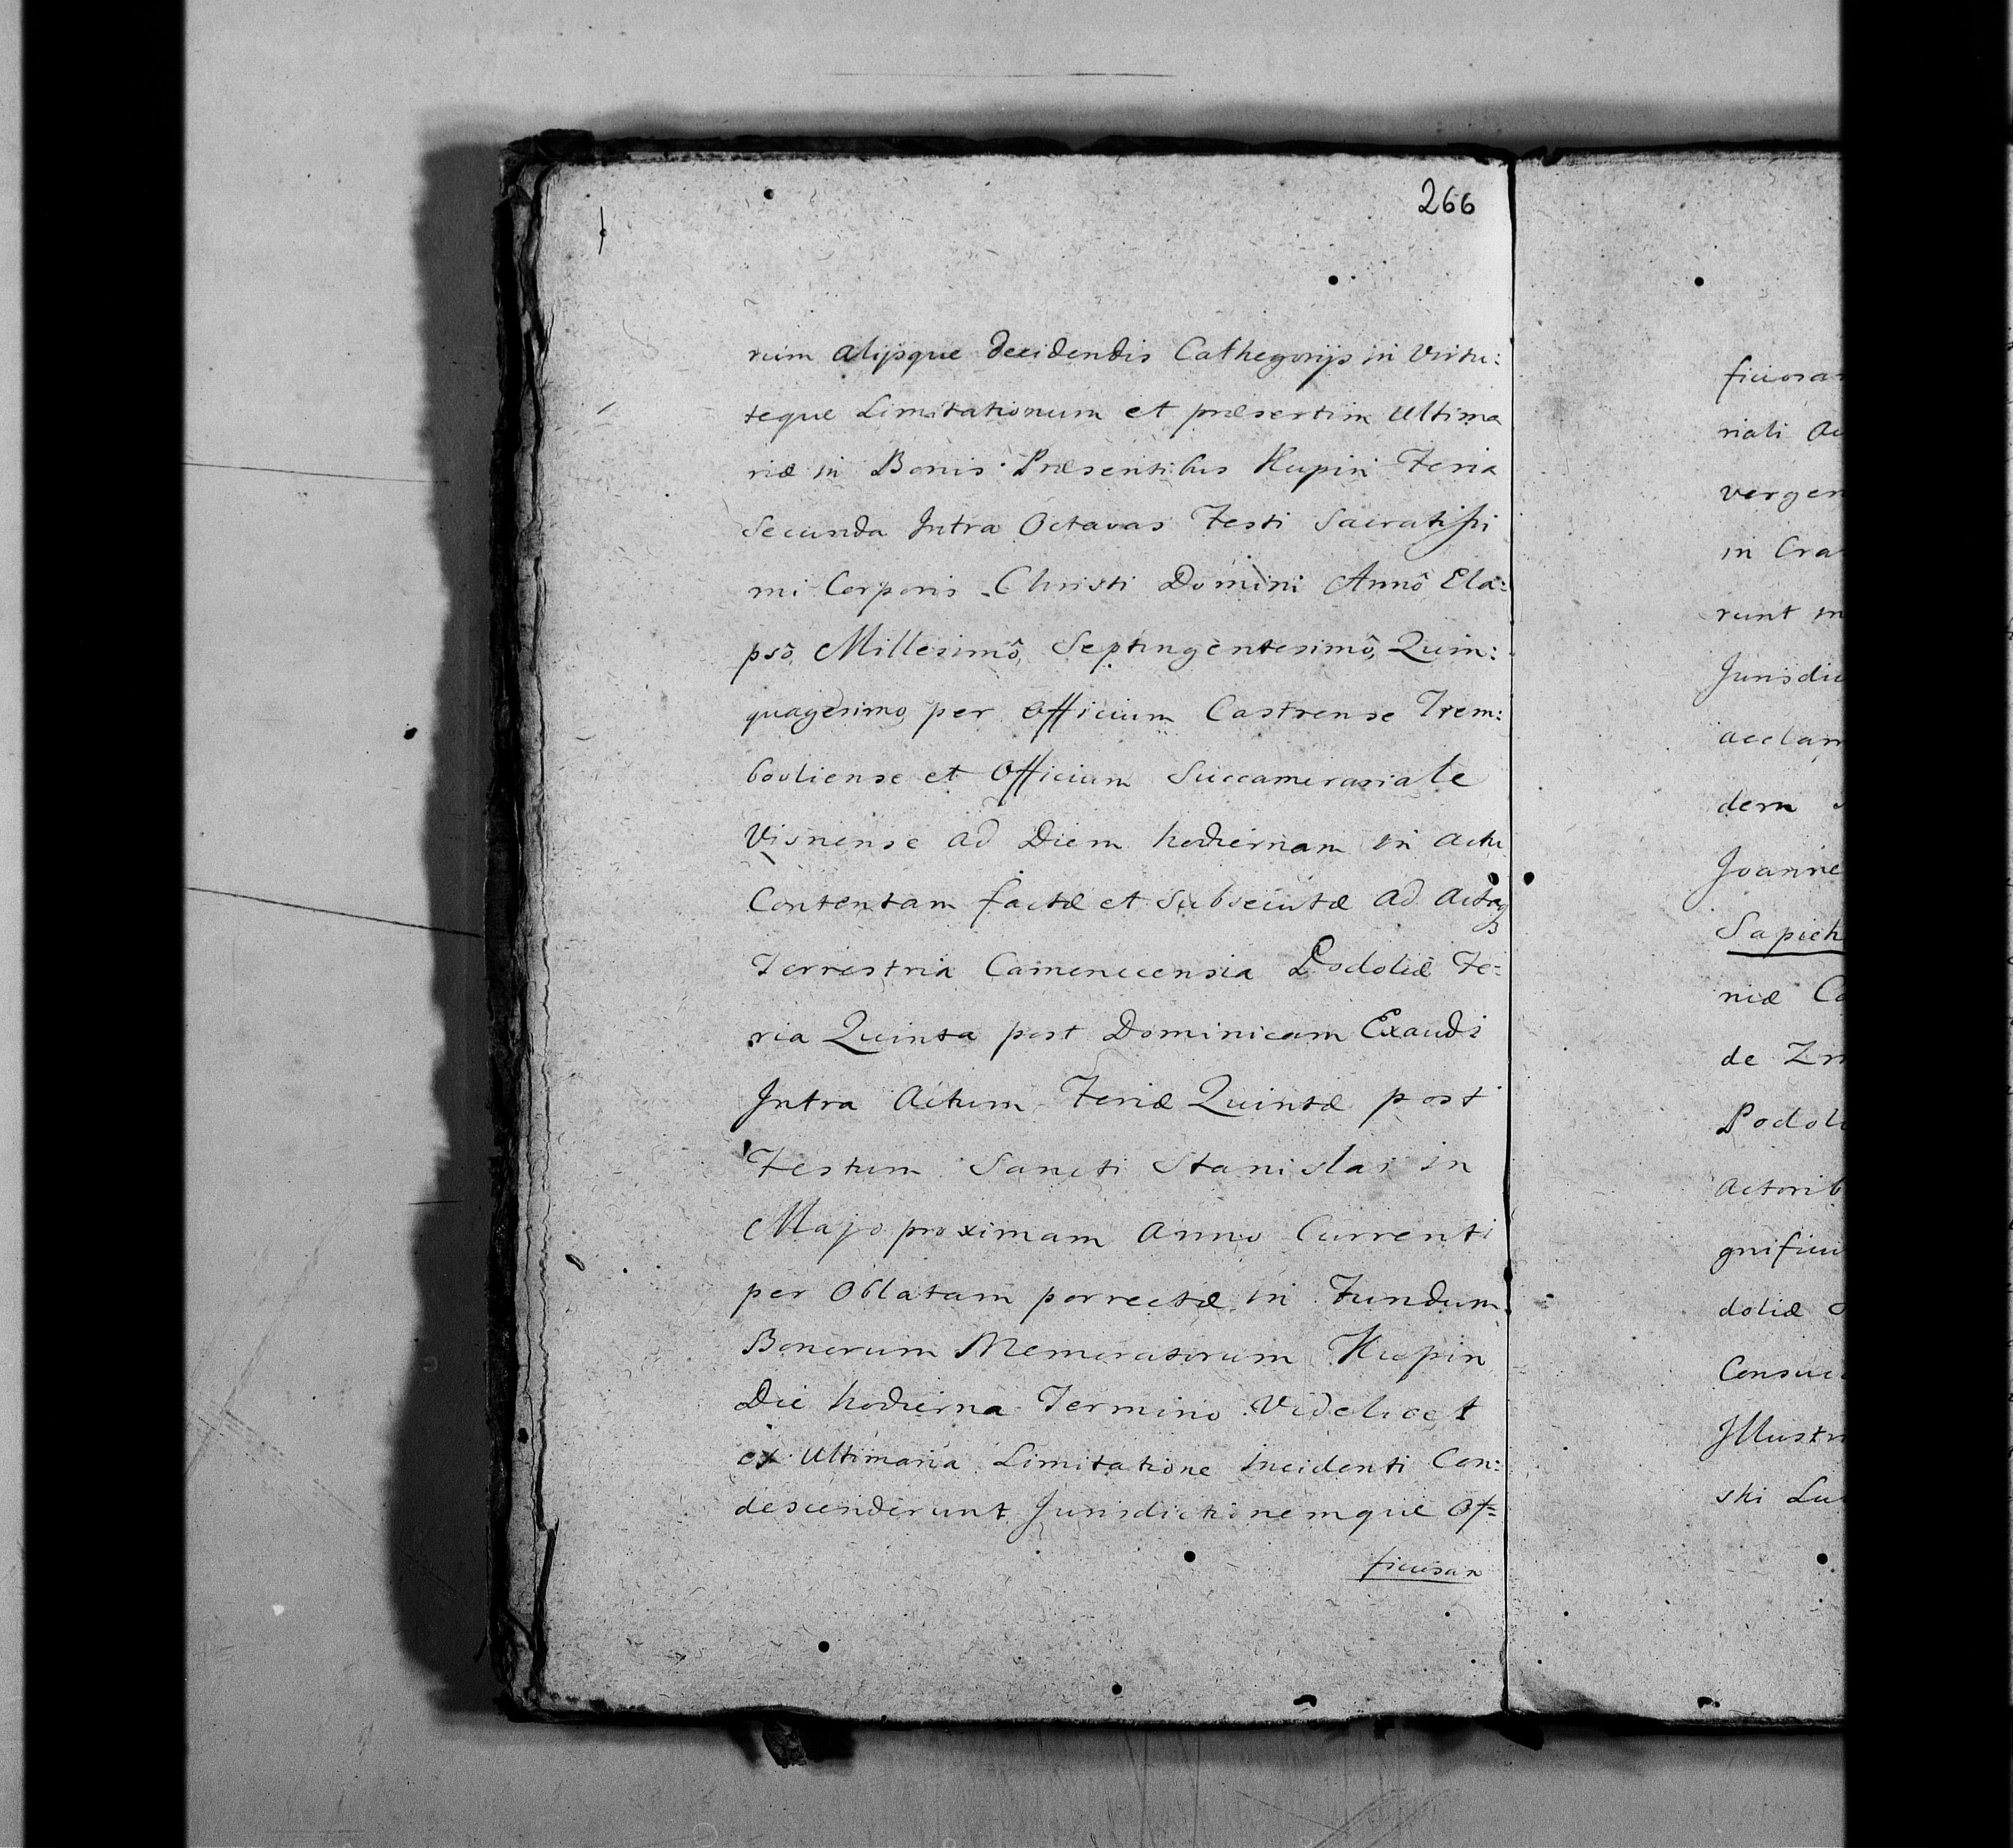 266
rum alijsque decidendis Cathegorijs in Virtu:
teque Limitationum et præsertim Ultima
riæ in Bonis Præsentibus Kupin Feria
Secunda Intra Octavas Festi Sacratissi
mi Corporis Christi Domini Annô Ela:
psô, Millesimô, Septingentesimô, Quin:
quagesimo, per Officium Castrense Trem:
bovliense et Officium Succamerariale
Visnense ad Diem hodiernam in actu
Contentam factæ et Subsecutæ ad Actaq
Terrestria Camenecensia Podoliæ Fe=
ria Quinta post Dominicam Exaudi
Intra Actum Feriæ Quintæ post
Festum Sancti Stanislai in
Majo proximam Anno Currenti
per Oblatam porrectæ in Fundum
Bonorum Memoratorum Kupin
Die hodierna Termino Videlicet
ex Ultimaria Limitatione incidenti Con:
descenderunt Jurisdictionemque Of=
ficiosan
ficiosa
riali
vergen
in Cra
runt in
Jurisdic
acclam
dem
Joanne
Sapieh
niæ Co
de Zm
Podoli
Actorib
gnificu
doliæ
Consuc
Illustri
ski Lu